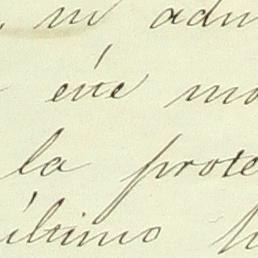 ni adm
éste mo
la prote
último h